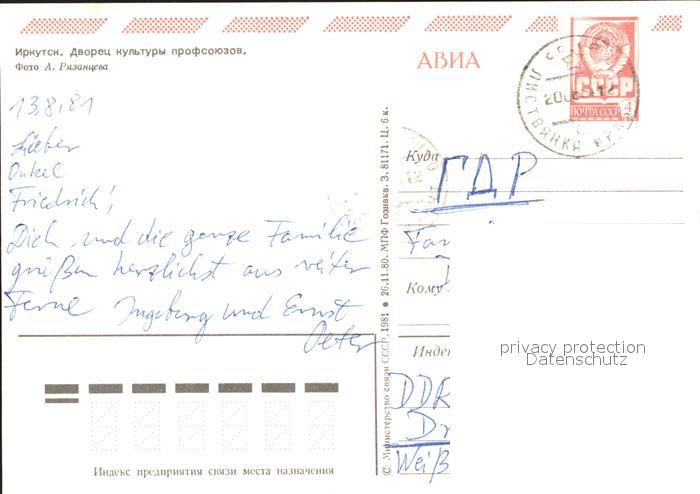 Иркутск. Дворец культуры профсоюзов.
Фото А. Рязанцева
АВИА
СССР
ПОЧТА СССР
4
ЛИСТВЯНКА ИРК
13.8.81
Lieber
Onkel
Friedrich!
Dich und die ganze Familie
grüßen herzlichst aus weiter
Ferne Ingeborg und Ernst
Peter
© Министерство связи СССР, 1981 ● 26.11.80. МПФ Гознака. З. 81171. Ц. 6 к.
Куда
ГДР
Fam
Кому
Индек
DDR
Dr
Weiß
privacy protection
Datenschutz
Индекс предприятия связи места назначения